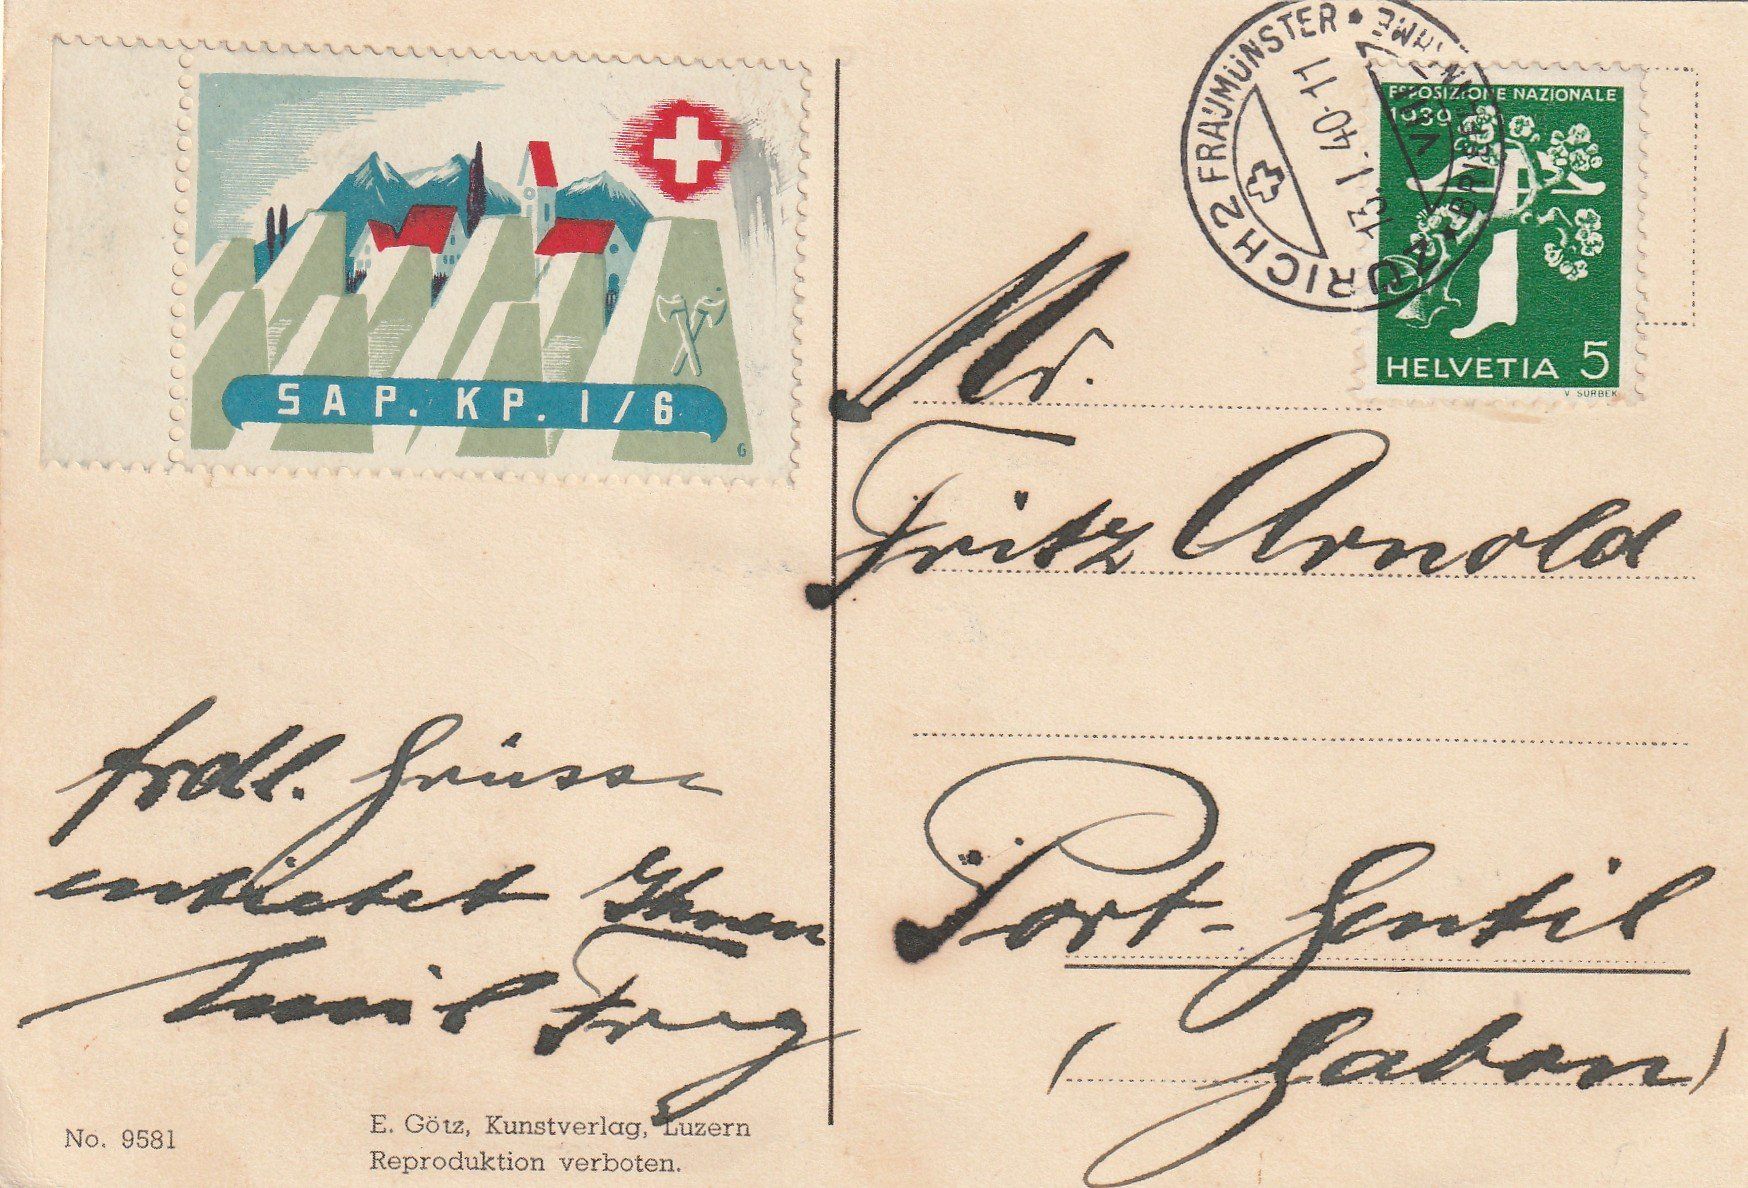 SAP. KP. 1/6
G
ZÜRICH 2 FRAUMÜNSTER
13.I.40-11
ESPOSIZIONE NAZIONALE
1939
HELVETIA 5
V SURBEK
Mr.
Fritz Arnold
Port-Gentil
(Gabon)
frdl. Grüsse
entbietet Ihnen
Emil Frey
No. 9581
E. Götz, Kunstverlag, Luzern
Reproduktion verboten.